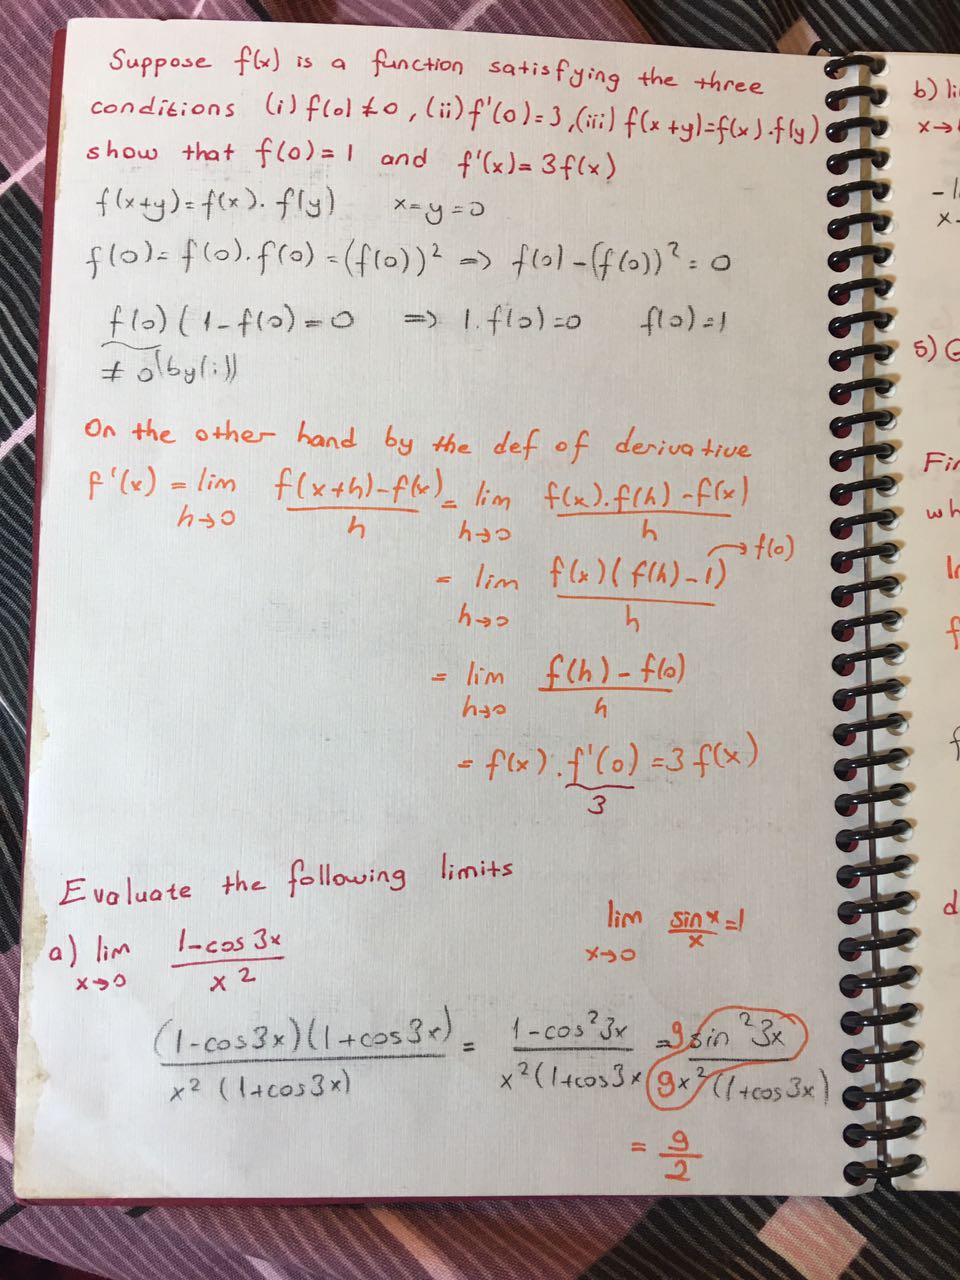 Suppose f(x) is a function satisfying the three
conditions (i) f(0) ≠ 0, (ii) f'(0)=3, (iii) f(x+y)=f(x).f(y)
show that f(0)=1 and f'(x)=3f(x)
f(x+y)=f(x).f(y) x=y=0
f(0)=f(0).f(0)=(f(0))² => f(0)-(f(0))²=0
f(0)(1-f(0)=0 => 1.f(0)=0 f(0)=1
≠ 0(by(i))
On the other hand by the def of derivative
f'(x) = lim h→0 f(x+h)-f(x)/h = lim h→0 f(x).f(h)-f(x)/h
= lim h→0 f(x)(f(h)-1)/h → f(0)
= lim h→0 f(h)-f(0)/h
= f(x).f'(0)=3f(x)
3
Evaluate the following limits
a) lim x→0 1-cos3x/x² lim x→0 sinx/x=1
(1-cos3x)(1+cos3x)/x²(1+cos3x) = 1-cos²3x/x²(1+cos3x = 9sin²3x/9x²(1+cos3x)
= 9/2
b) li
x→
x-
5) G
Fin
wh
f
d